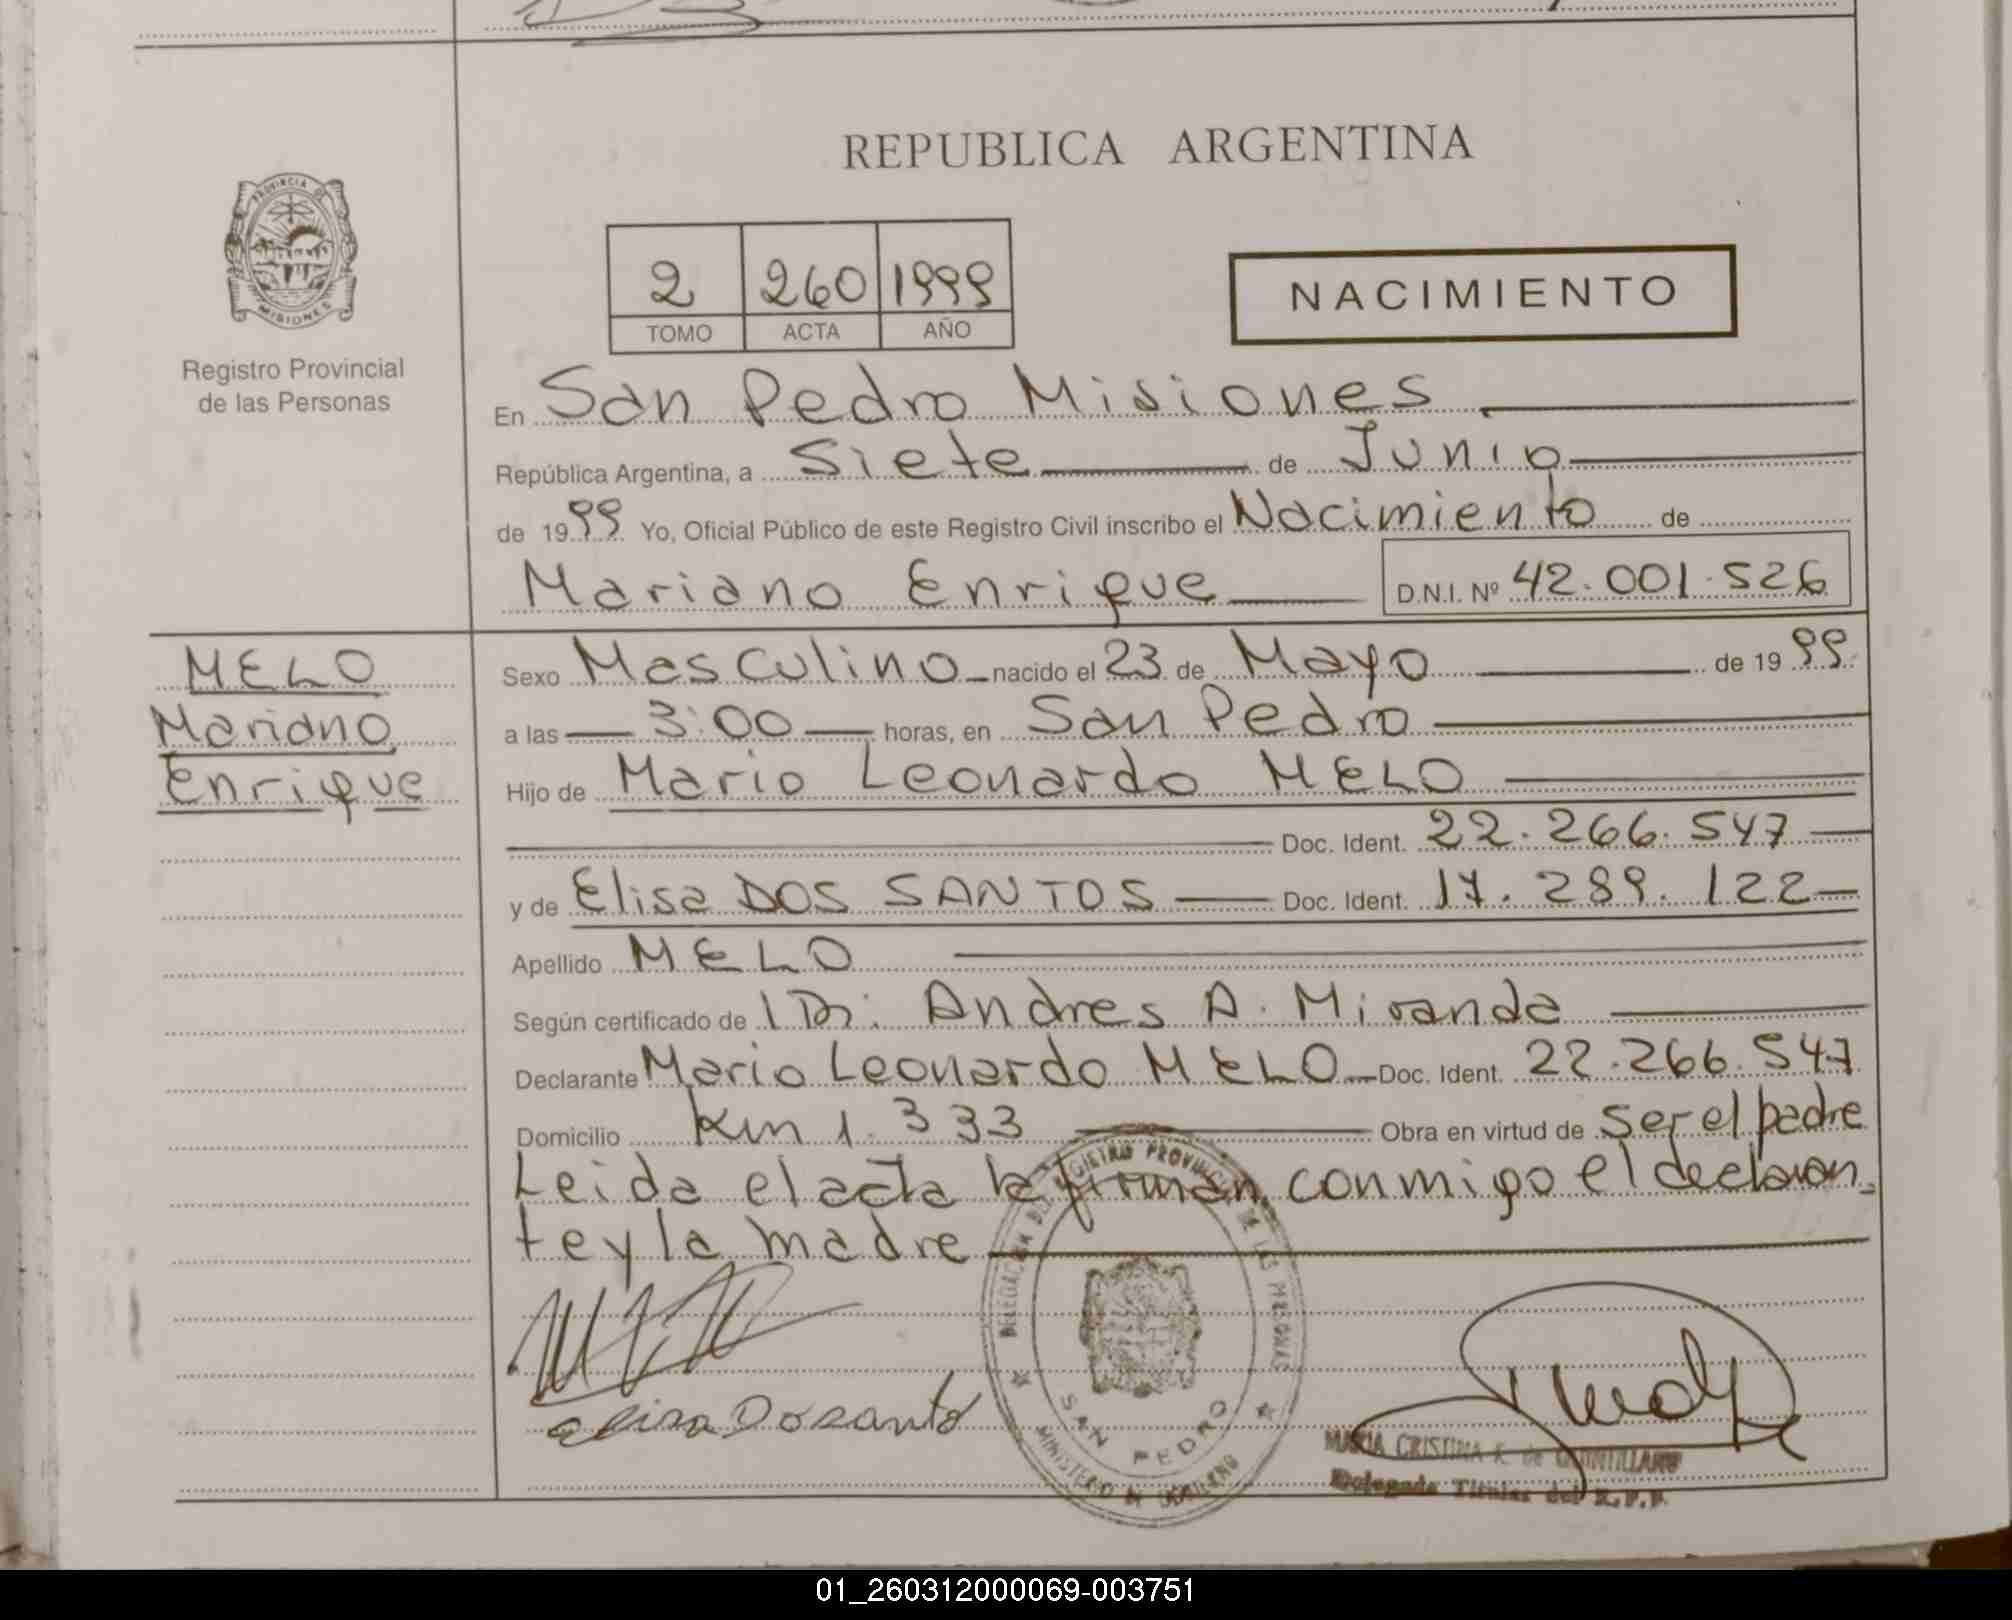 REPUBLICA ARGENTINA
PROVINCIA DE
MISIONES
Registro Provincial
de las Personas
2 260 1999
TOMO ACTA AÑO
NACIMIENTO
En San Pedro Misiones
República Argentina, a Siete de Junio
de 1999 Yo, Oficial Público de este Registro Civil inscribo el Nacimiento de
Mariano Enrique D.N.I. Nº 42.001.526
MELO
Mariano
Enrique
Sexo Masculino nacido el 23 de Mayo de 1999
a las 3:00 horas, en San Pedro
Hijo de Mario Leonardo MELO
Doc. Ident. 22.266.547
y de Elisa DOS SANTOS Doc. Ident. 17.289.122
Apellido MELO
Según certificado de Dr. Andres A. Miranda
Declarante Mario Leonardo MELO Doc. Ident. 22.266.547
Domicilio Km 1.333 Obra en virtud de ser el padre
Leida el acta la firman conmigo el declaran
te y la madre
elisa Dosanto
DELEGACION DEL REGISTRO PROVINCIAL DE LAS PERSONAS
SAN PEDRO
MINISTERIO DE GOBIERNO
MARIA CRISTINA K. de QUINTILLANO
Delegada Titular del R.P.P.
01_260312000069-003751